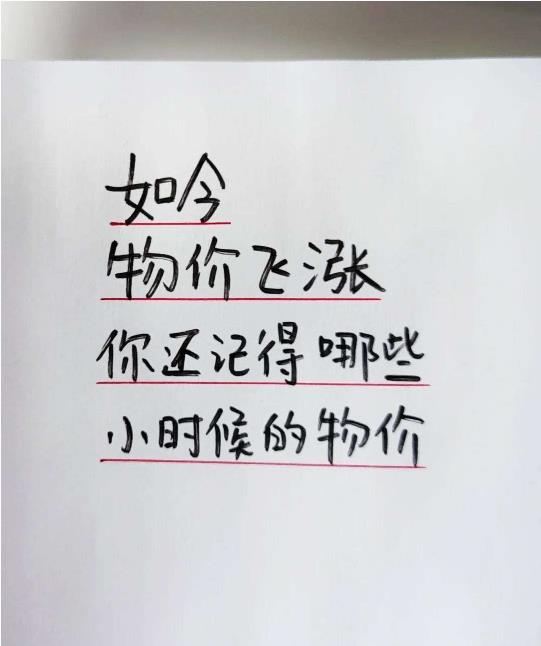 如今
物价飞涨
你还记得哪些
小时候的物价